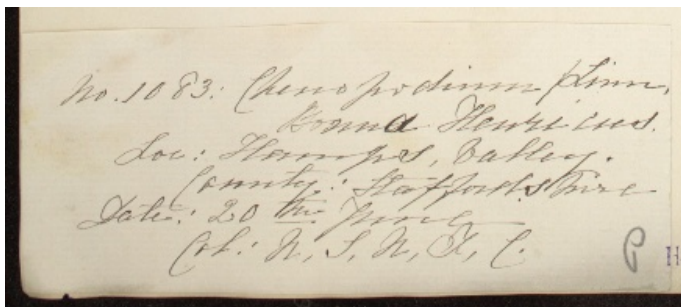 No. 1083: Chenopodium Linn.
Bonus Henricus.
Loc: Hamps, Valley.
County: Staffordshire
Date: 20th June
Col: N, S, N, F, C.
P
H